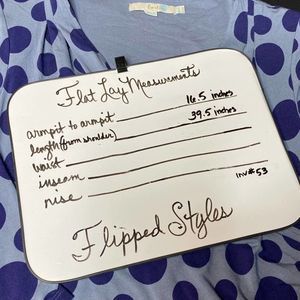 Flat Lay Measurements
armpit to armpit 16.5 inches
length (from shoulder) 39.5 inches
waist
inseam
rise
inv# 53
Flipped Styles